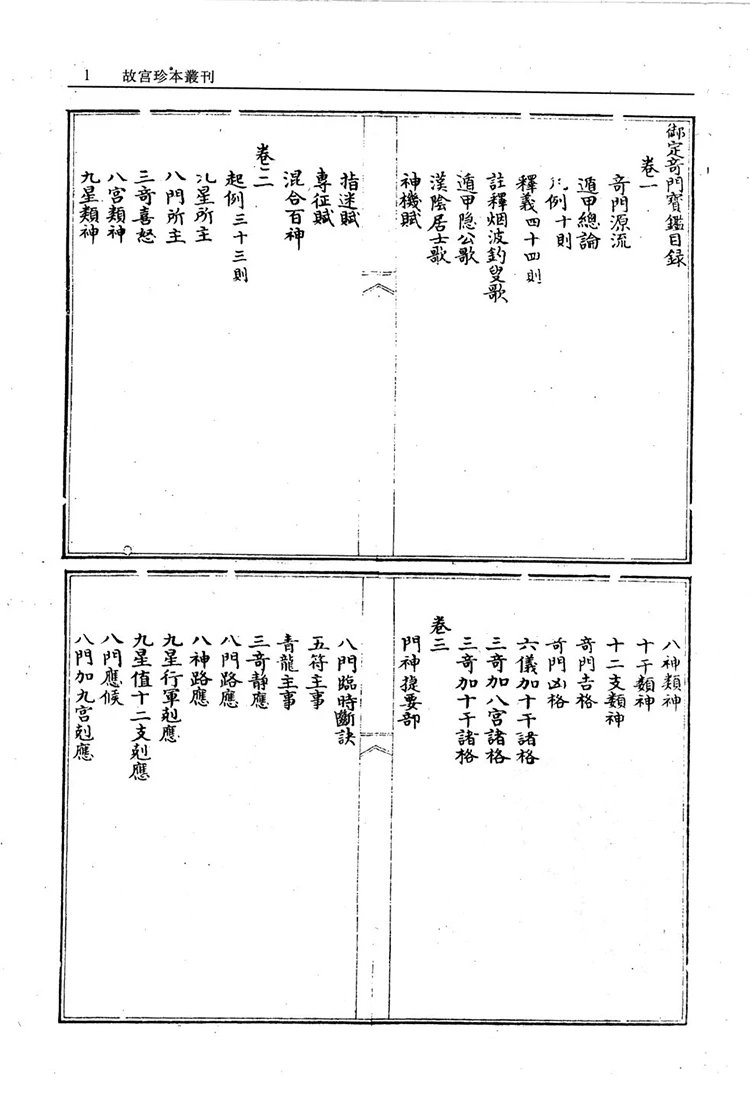 1 故宮珍本叢刊
御定奇門寶鑑目録
卷一
奇門源流
遁甲總論
凡例十則
釋義四十四則
註釋烟波釣叟歌
遁甲隐公歌
漢陰居士歌
神機賦
指迷賦
專征賦
混合百神
卷二
起例三十三則
九星所主
八門所主
三奇喜怒
八宮類神
九星類神
八神類神
十干類神
十二支類神
奇門吉格
奇門凶格
六儀加十干諸格
三奇加八宮諸格
三奇加十干諸格
卷三
門神提要部
八門臨時斷訣
五符主事
青龍主事
三奇静應
八門路應
八神路應
九星行軍剋應
九星值十二支剋應
八門應候
八門加九宮剋應